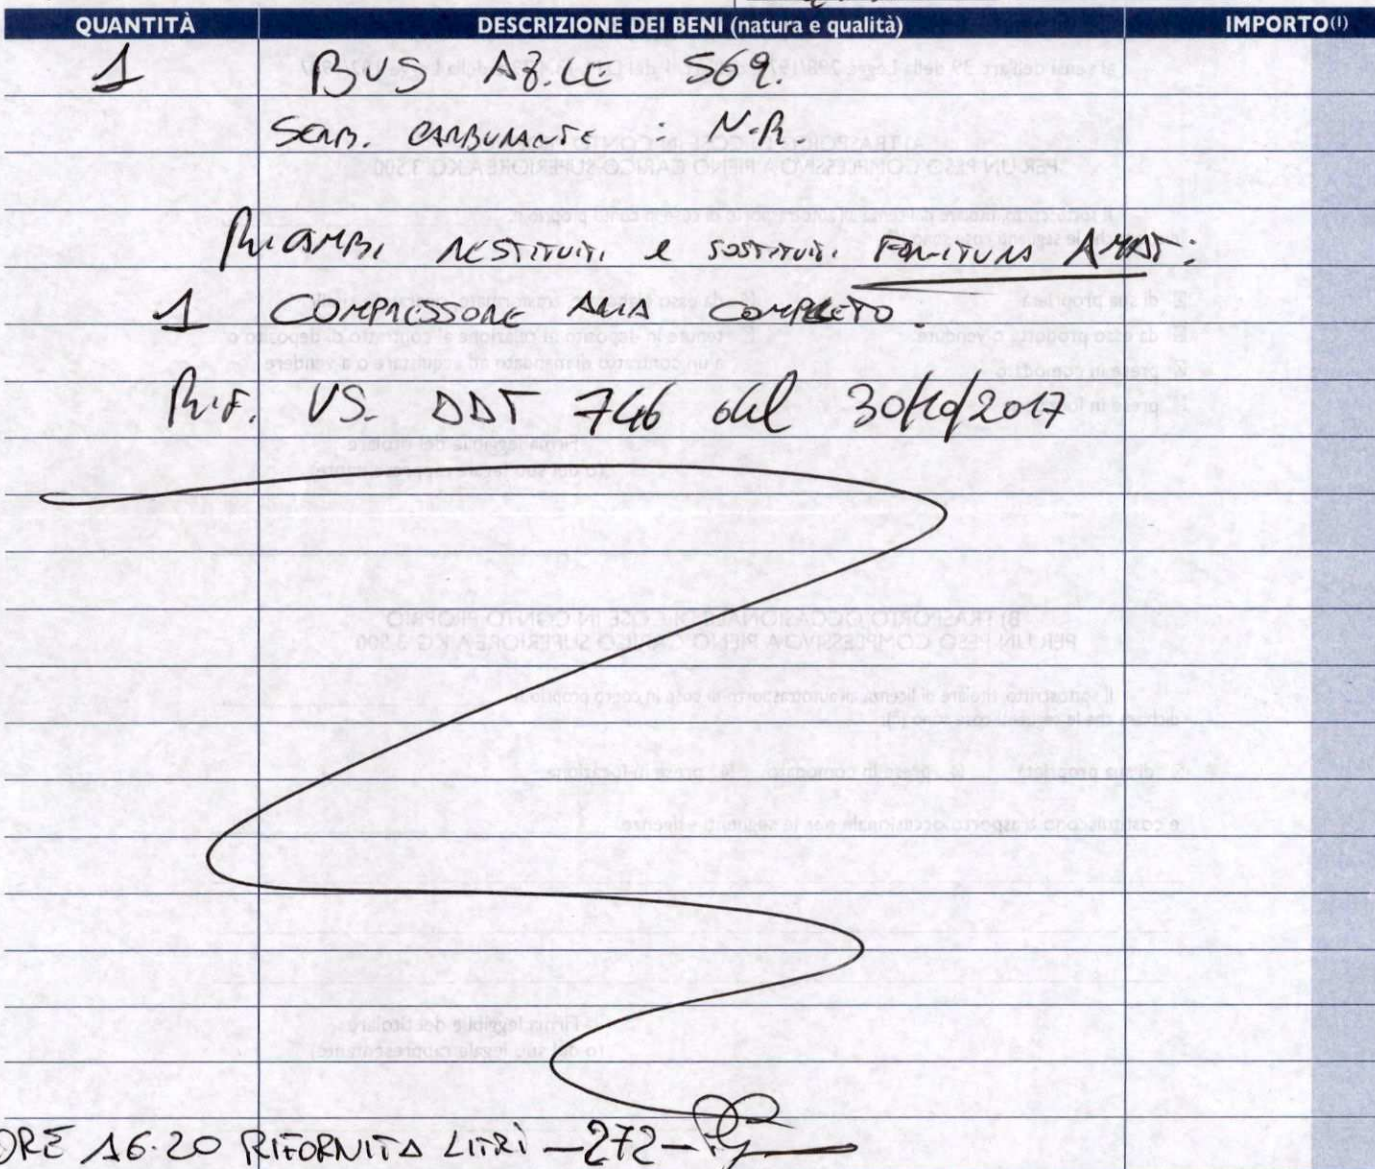 QUANTITÀ DESCRIZIONE DEI BENI (natura e qualità) IMPORTO(1)
1 BUS AZ.LE 569.
SERB. CARBURANTE : N.R.
RICAMBI RESTITUITI e SOSTITUITI FORNITURA AMAT:
1 COMPRESSORE ARIA COMPLETO.
RIF. VS. DDT 746 del 30/10/2017
ORE 16.20 RIFORNITA LITRI -272-